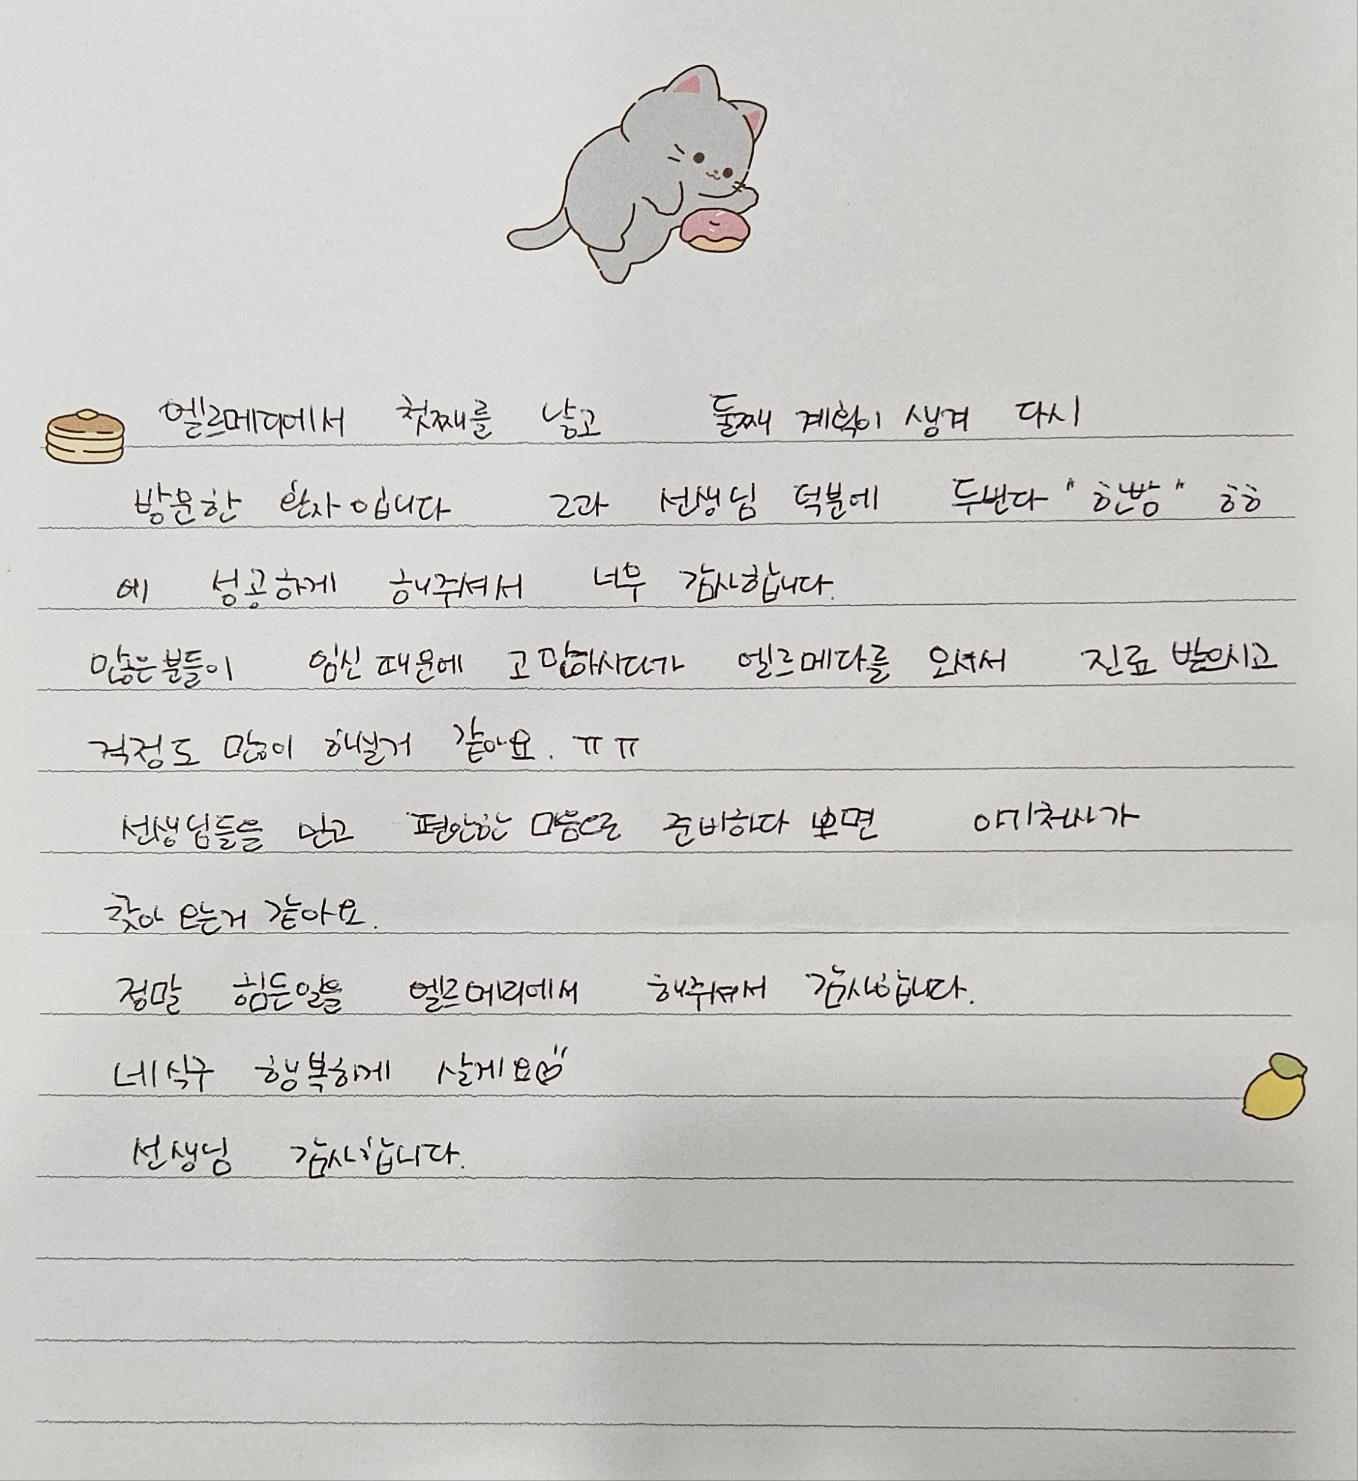 엘르메디에서 첫째를 낳고 둘째 계획이 생겨 다시
방문한 환자입니다 2과 선생님 덕분에 두번다 "한빵" ㅎㅎ
에 성공하게 해주셔서 너무 감사합니다.
많은분들이 임신때문에 고민하시다가 엘르메디를 오셔서 진료 받으시고
걱정도 많이 하실거 같아요. ㅠㅠ
선생님들을 믿고 편안한 마음으로 준비하다 보면 아기천사가
찾아 오는거 같아요.
정말 힘든일을 엘르메디에서 해주셔서 감사합니다.
네식구 행복하게 살게요
선생님 감사합니다.